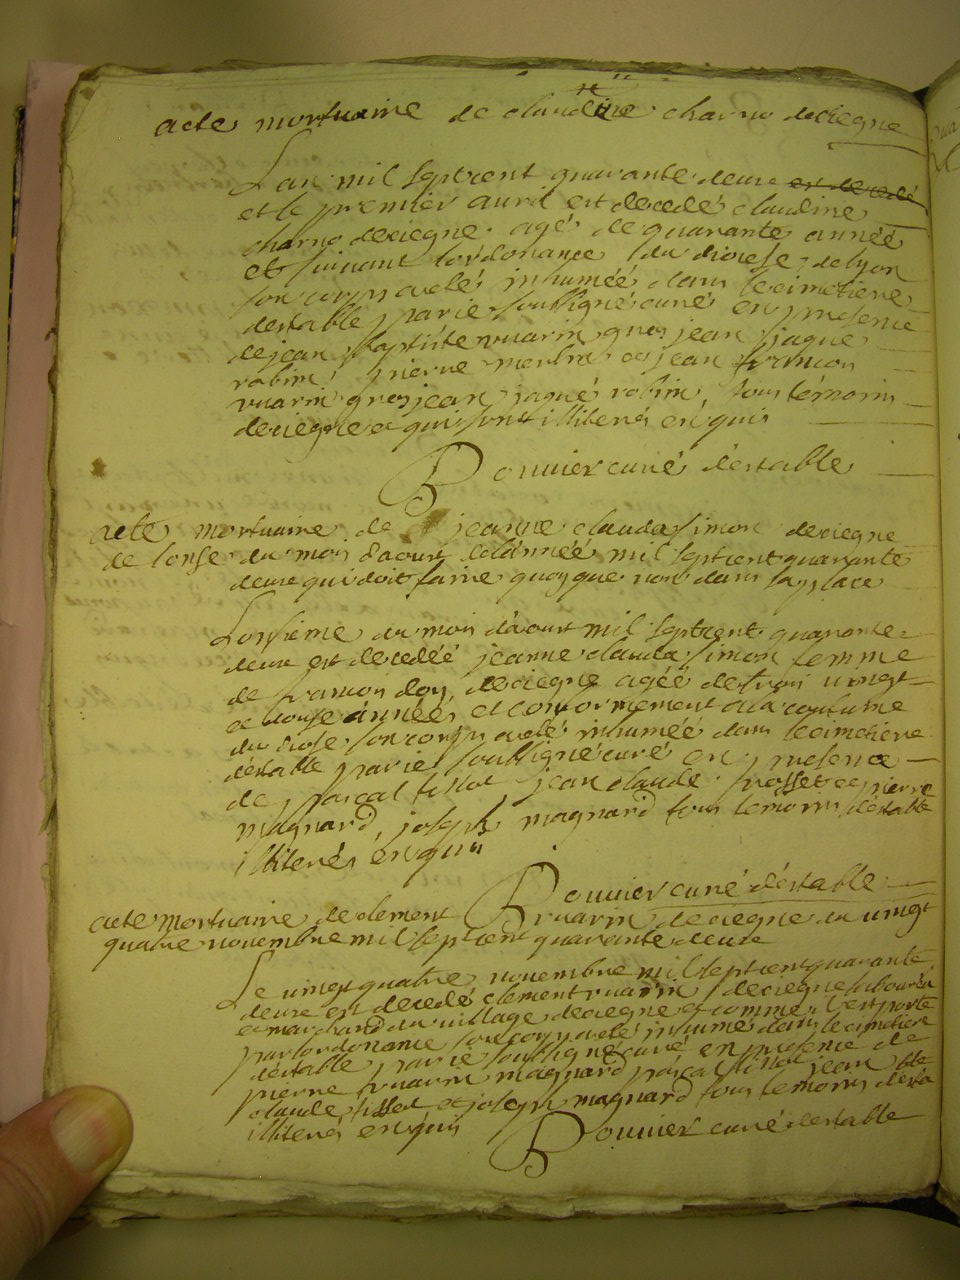 acte mortuaire de claudine charno deciegne
Lan mil septcent quarante deuxe est decedé
et le premier auril est decedé claudine
charno deciegne agé de quarante année
et suiuant lordonance du diocese de lyon
son corps a etés inhumée dans le cimetiere
destable par ie soussigné curé en presence
de jean baptiste vuarin gros jean jaque
robin, pierre et jean francois
vuarin gros jean jaque robin, tous temoins
deciegne et qui sont illiterés enquis
Bouuier curé destable
acte mortuaire de jeanne clauda simon deciegne
de lonse du mois daoust de lannéé mil septcent quarante
deuxe qui doit faire quoyque non dans sa place
Lonsieme du mois daoust mil septcent quarante
deuxe est decedéé jeanne clauda simon femme
de francois doy, deciegne agéé de trois uingt
et douse années et conformement a la coutume
du diose son corps a etés inhuméé dans le cimetiere
destable par ie soussigné curé en presence
de pascal tissot jean claude et pierre
magnard, joseph magnard tous temoins destable
illiterés enquis
Bouuier curé destable
acte mortuaire de clement vuarin deciegne du uingt
quatre nouembre mil septcent quarante deuxe
Le uingt quatre nouembre mil septcent quarante
deuxe est decedé clement vuarin deciegne laboureur
et marchand du uillage deciegne et comme lest porté
par lordonance son corps a eté inhumé dans le cimetiere
destable par ie soussigné curé en presence de
pierre vuarin magnard pascal tissot jean
claude tissot et joseph magnard tous temoins
illiterés enquis
Bouuier curé destable